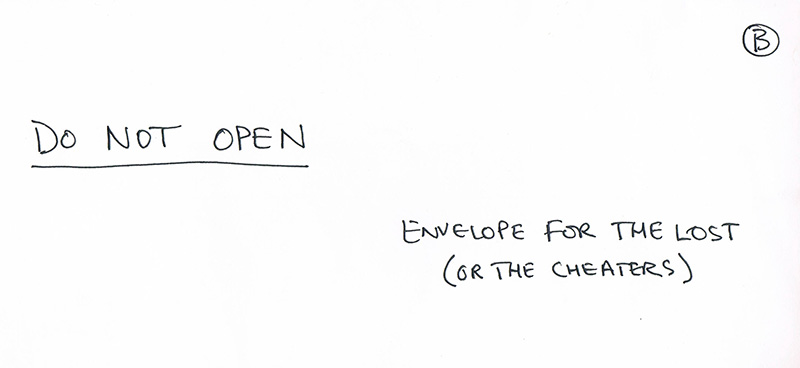 B
DO NOT OPEN
ENVELOPE FOR THE LOST
(OR THE CHEATERS)